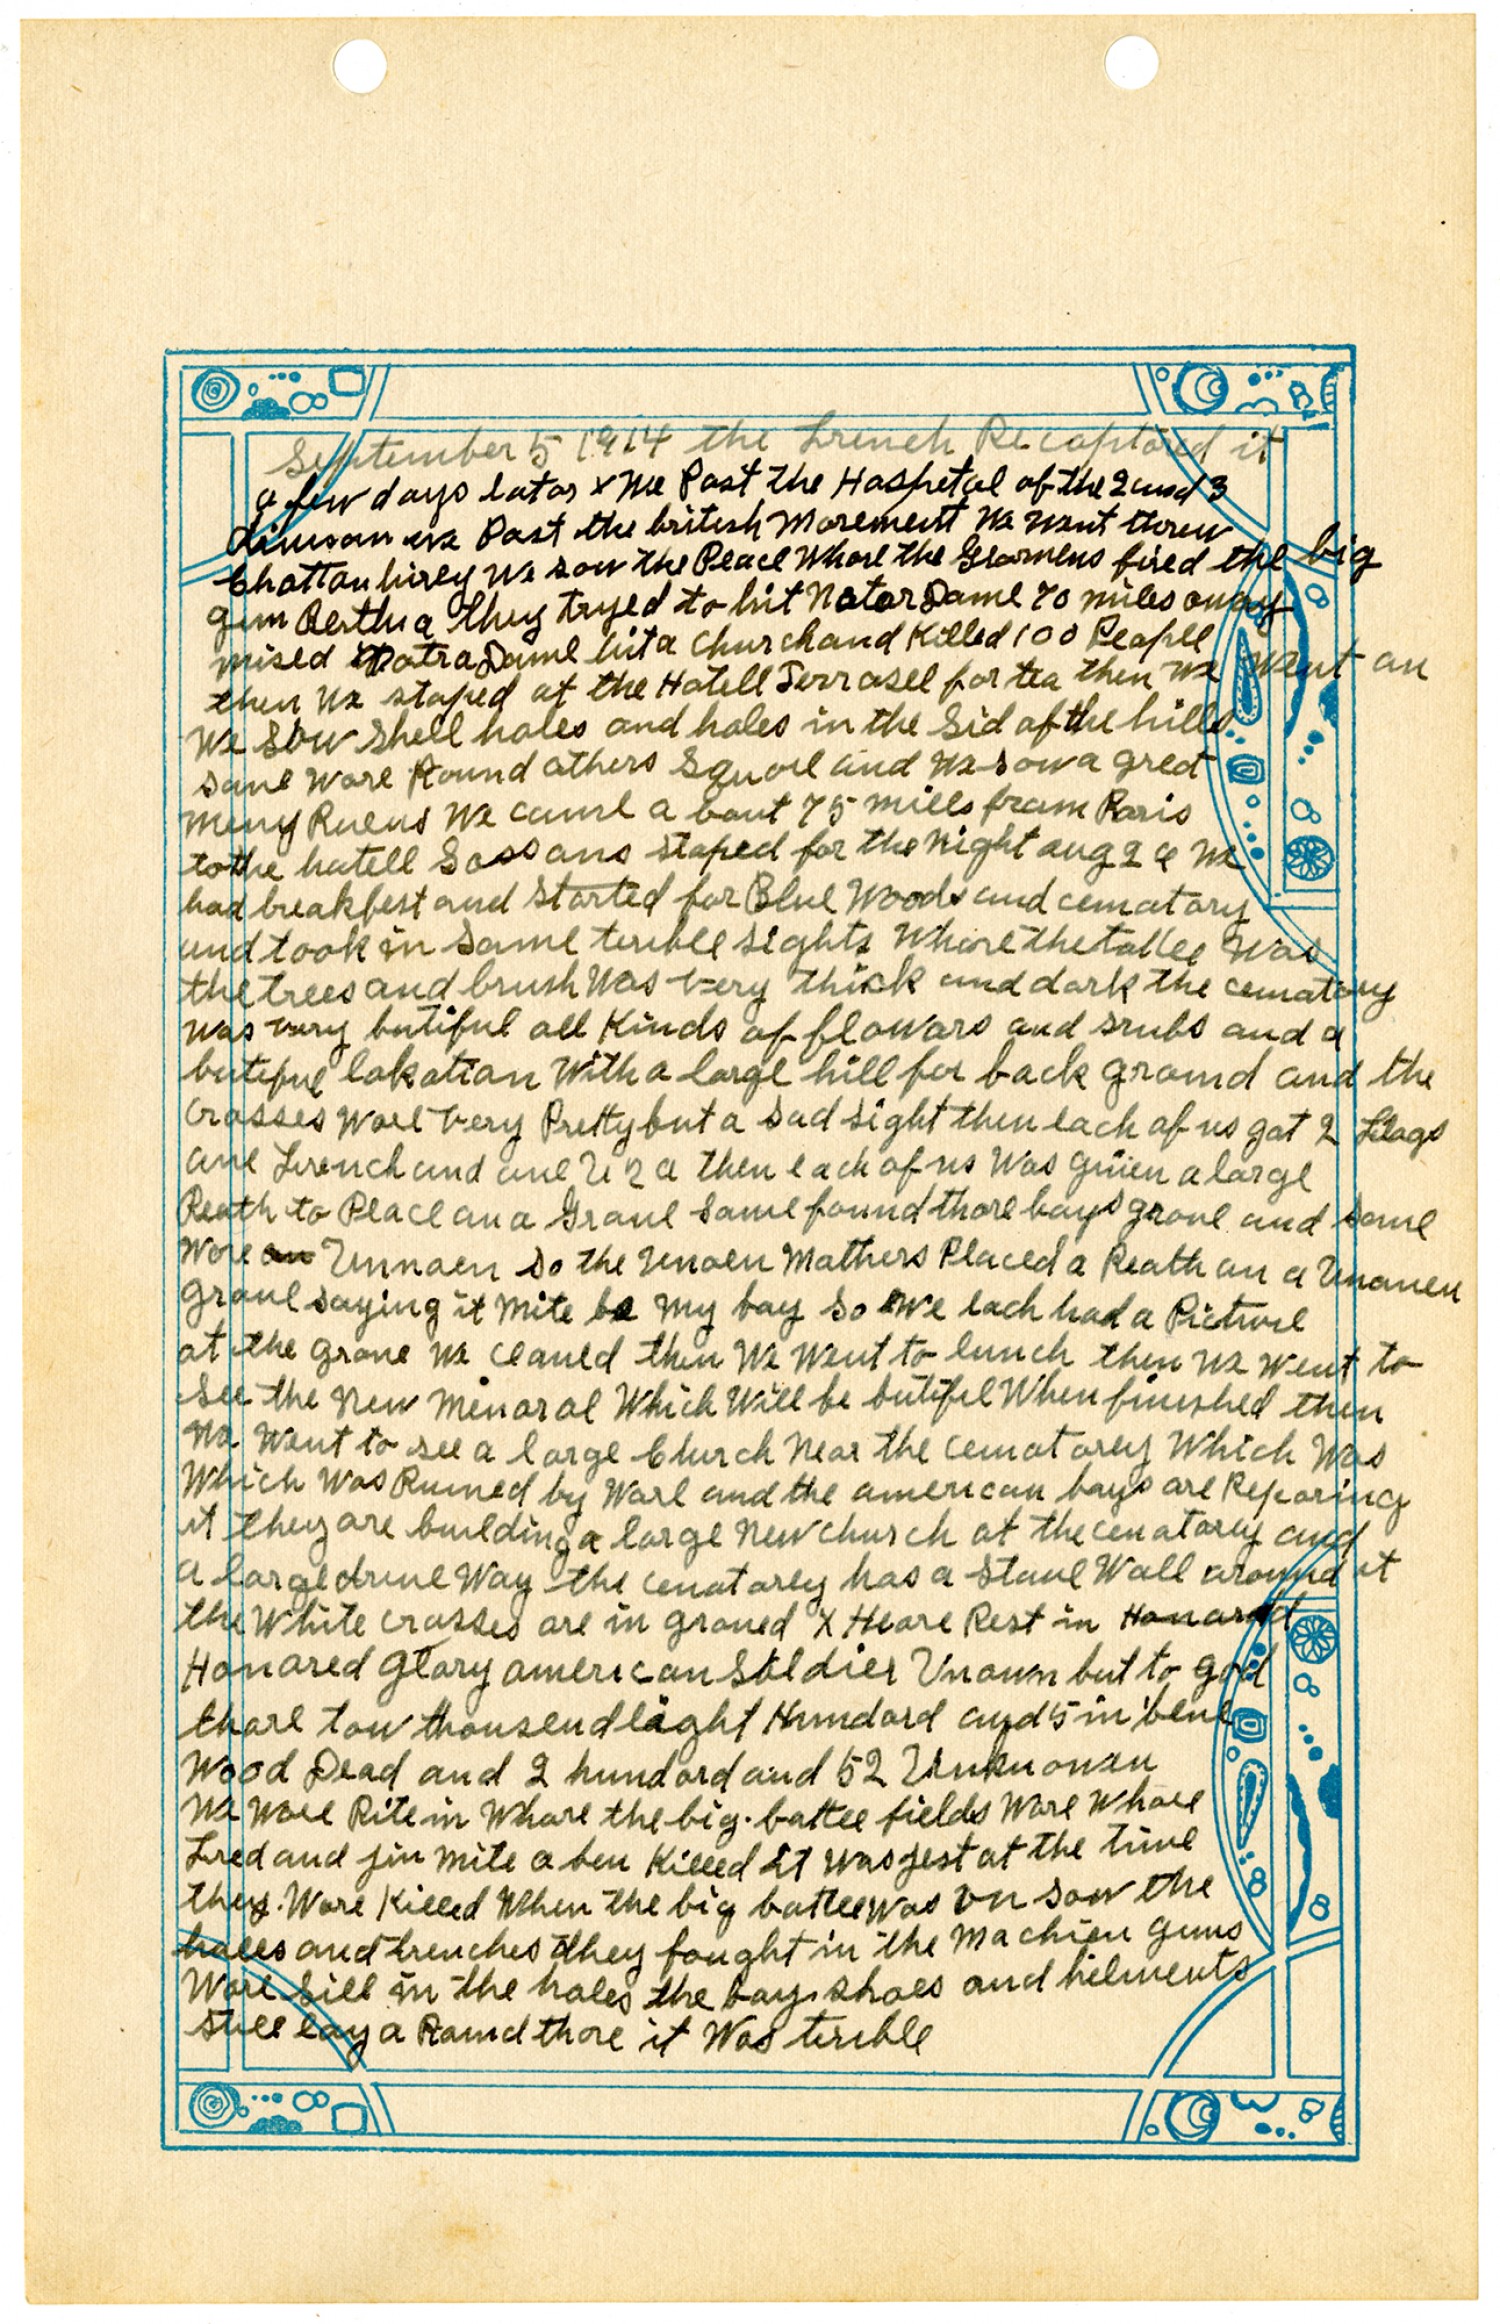 September 5 1914 the French Recaptored it
a few days lator x We Past the Hospetal of the 2 and 3
divison we Past the british Morement We Went threw
Chattau hirey We sow the Place Whare the Germens fired the big
gun Bertha they tryed to hit Notor Dame 70 miles away
mised Notra Dame hit a Church and Killed 100 People
then We stoped at the Hotell Terrasel for tea then We Went on
We Sow Shell holes and holes in the Sid of the hills
some Ware Round others Squar and We sow a gret
meny Ruens We came a bout 75 mills from Paris
to the hotell Sossons stoped for the Night aug 26 We
had breakfest and Started for Blue Woods and cematory
and took in Some terible sights Whare the tallee Was
the trees and brush Was very thick and dark the cematory
Was very butiful all Kinds of flowars and srubs and a
butiful lokation With a large hill for back ground and the
Crosses Ware very Pretty but a sad sight then each of us got 2 Flags
one French and one U S a then each of us Was given a large
Reath to Place on a Grave some found thare boys grave and some
Ware an Unnoen so the Unoen Mothers Placed a Reath on a Unonen
grave saying it Mite be My boy so We each had a Picture
at the grave We claned then We Went to lunch then We Went to
see the New Menoral Which Will be butiful When finished then
We Went to see a large Church Near the cematorey Which Was
Which Was Ruined by Ware and the american boys are Reparing
it they are building a large New church at the cematorey and
a large drive Way the cematorey has a Stone Wall around it
the White crosses are in graved X Heare Rest in Honared
Honared Glory american Soldier Unown but to god
thare tow thousend eaght Hundard and 5 in bene
Wood Dead and 2 hundard and 52 Unknowen
We Ware Rite in Whare the big battle fields Ware Whare
Fred and jim Mite a ben Killed it Was jest at the time
they Ware Killed When the big battle Was on Sow the
holes and trenches they fought in the Machien guns
Ware Sill in the holes the boys shoes and helments
still lay a Round thare it Was terible